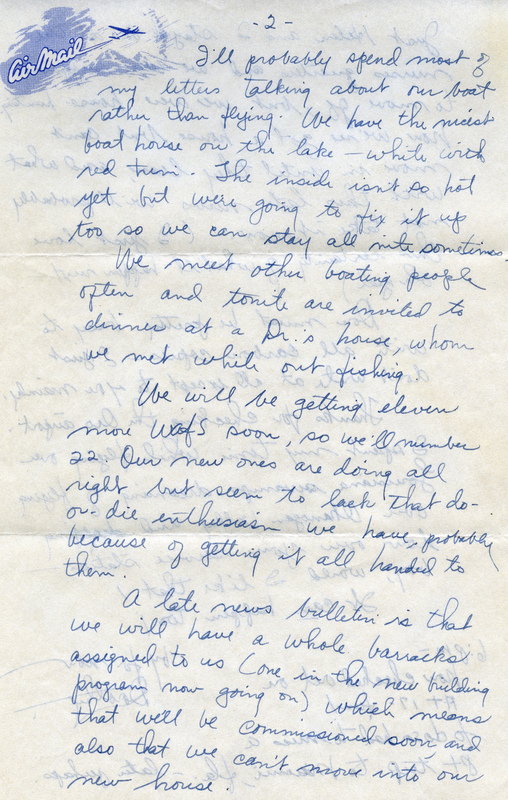 Air Mail
-2-
I'll probably spend most of
my letters talking about our boat
rather than flying. We have the nicest
boat house on the lake - white with
red trim. The inside isn't so hot
yet but we're going to fix it up
too so we can stay all nite sometimes.
We meet other boating people
often and tonite are invited to
dinner at a Dr.'s house, whom
we met while out fishing.
We will be getting eleven
more Wafs soon, so we'll number
22. Our new ones are doing all
right but seem to lack that do-
or-die enthusiasm we have, probably
because of getting it all handed to
them.
A late news bulletin is that
we will have a whole barracks
assigned to us (one in the new building
program now going on) which means
that we'll be commissioned soon, and
also that we can't move into our
new house.